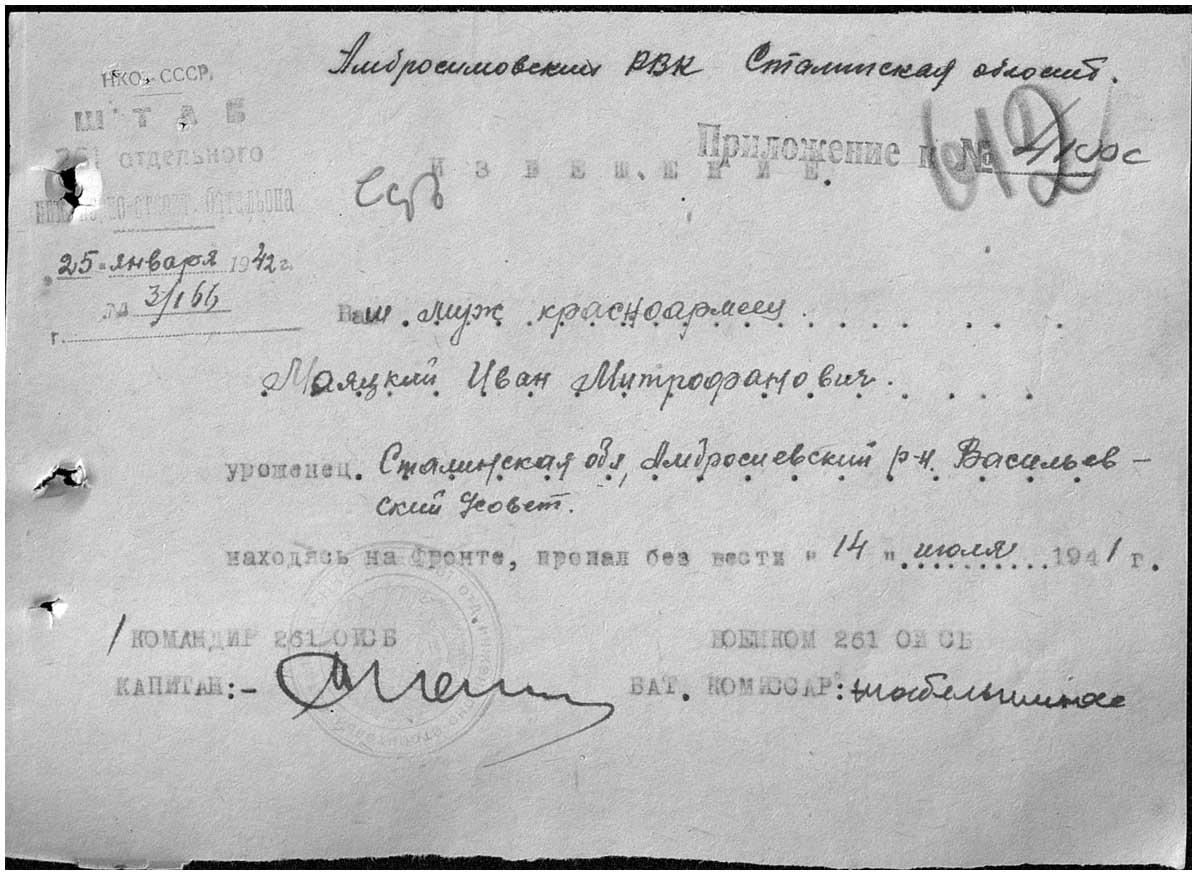 Амбросимовский РВК Сталинская област.
НКО, СССР,
ШТАБ
261 отдельного
батальона
"25" января 1942 г.
№ 3/166
г.
Приложение к №
ИЗВЕЩЕНИЕ.
Ваш муж красноармеец
Маяцкий Иван Митрофанович.
уроженец. Сталинская обл, Амбросиевский р-н. Васильев-
ский с/совет.
находясь на фронте, пропал без вести "14" июля 1941 г.
КОМАНДИР 261 ОИСБ
ВОЕНКОМ 261 ОИСБ
КАПИТАН:-
БАТ. КОМИССАР: